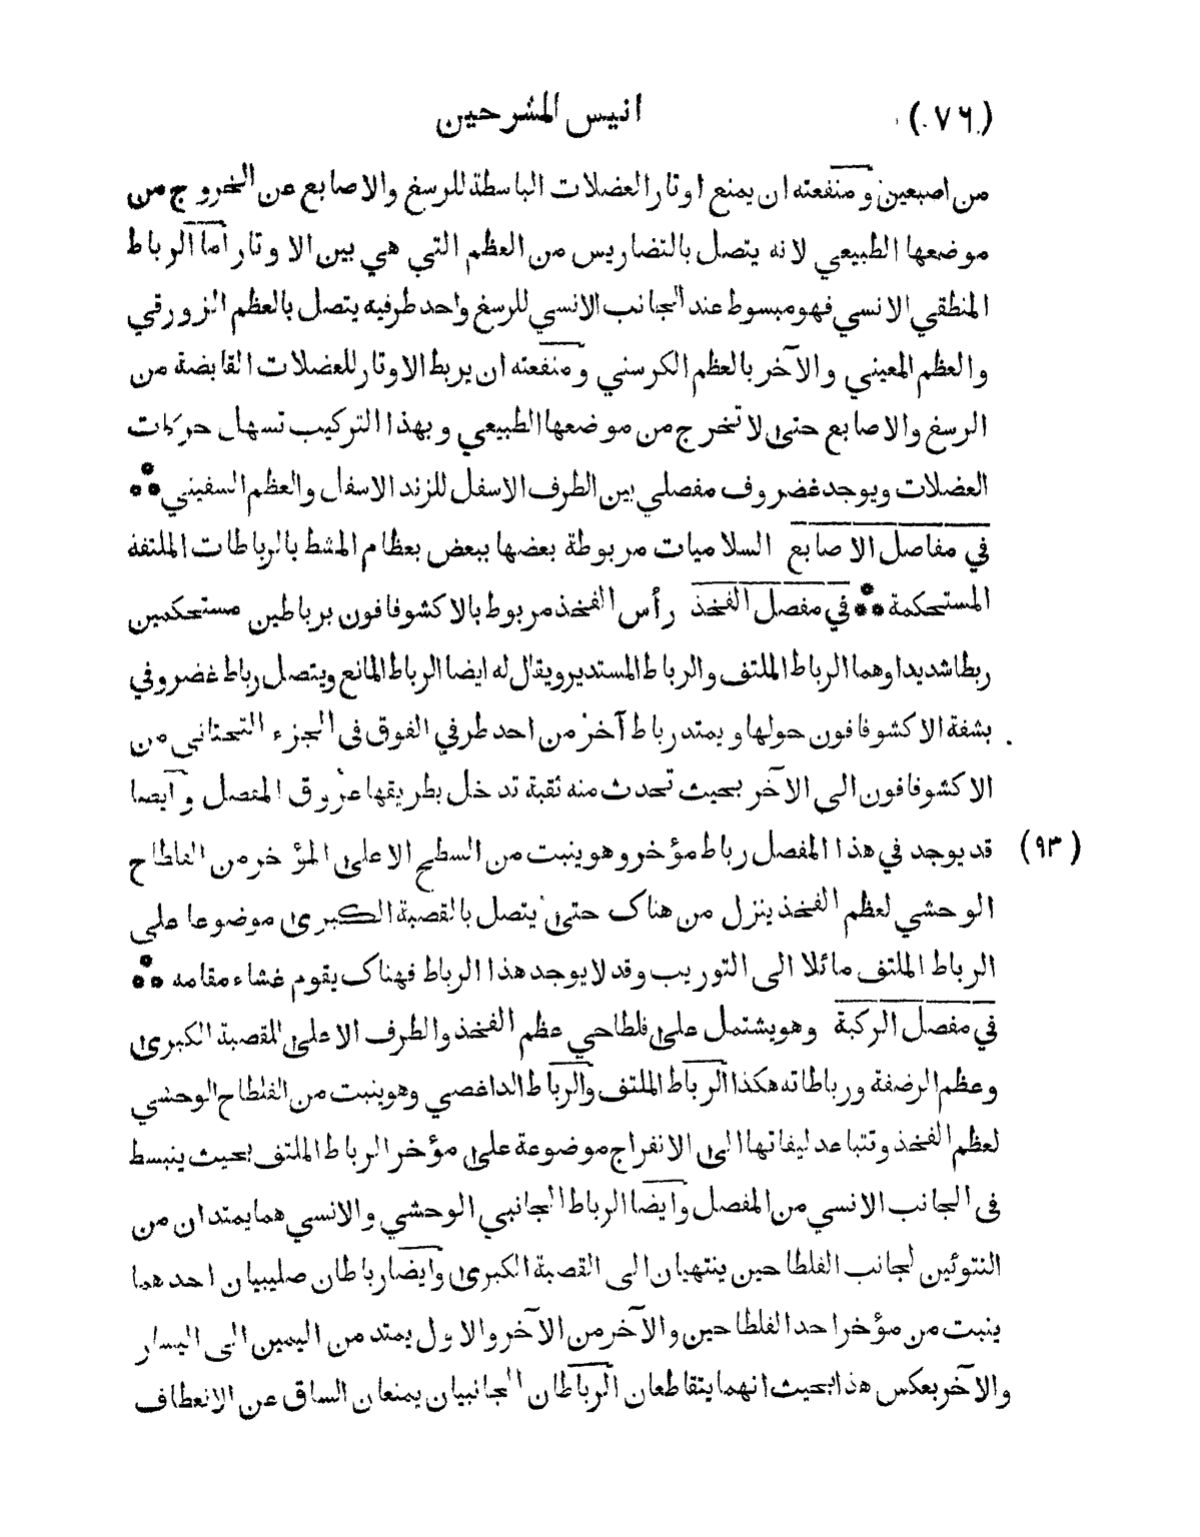 (٧٦) انيس المشرحين
من اصبعين ومنفعته ان يمنع اوتار العضلات الباسطة للرسغ والاصابع عن الخروج من
موضعها الطبيعي لانه يتصل بالتضاريس من العظم التي هي بين الاوتار اما الرباط
المنطقي الانسي فهو مبسوط عند الجانب الانسي للرسغ واحد طرفيه يتصل بالعظم الزورقي
والعظم المعيني والآخر بالعظم الكرسني ومنفعته ان يربط الاوتار للعضلات القابضة من
الرسغ والاصابع حتى لا تخرج من موضعها الطبيعي وبهذا التركيب تسهل حركات
العضلات ويوجد غضروف مفصلي بين الطرف الاسفل للزند الاسفل والعظم السفيني
في مفاصل الاصابع السلاميات مربوطة بعضها ببعض بعظام المشط بالرباطات الملتفة
المستحكمة في مفصل الفخذ رأس الفخذ مربوط بالاكشوفافون برباطين مستحكمين
ربطا شديدا وهما الرباط الملتف والرباط المستدير ويقال له ايضا الرباط المانع ويتصل رباط غضروفي
بشفة الاكشوفافون حولها ويمتد رباط آخر من احد طرفي الفوق في الجزء التحتاني من
الاكشوفافون الى الآخر بحيث تحدث منه ثقبة تدخل بطريقها عروق المفصل وايضا
(٩٣) قد يوجد في هذا المفصل رباط مؤخر وهو ينبت من السطح الاعلى المؤخر من الفلطاح
الوحشي لعظم الفخذ ينزل من هناك حتى يتصل بالقصبة الكبرى موضوعا على
الرباط الملتف مائلا الى التوريب وقد لا يوجد هذا الرباط فهناك يقوم غشاء مقامه
في مفصل الركبة وهو يشتمل على فلطاحي عظم الفخذ والطرف الاعلى للقصبة الكبرى
وعظم الرضفة ورباطاته هكذا الرباط الملتف والرباط الداغصي وهو ينبت من الفلطاح الوحشي
لعظم الفخذ وتتباعد ليفاتها الى الانفراج موضوعة على مؤخر الرباط الملتف بحيث ينبسط
في الجانب الانسي من المفصل وايضا الرباط الجانبي الوحشي والانسي هما يمتدان من
النتوئين لجانب الفلطاحين ينتهيان الى القصبة الكبرى وايضا رباطان صليبيان احدهما
ينبت من مؤخر احد الفلطاحين والآخر من الآخر والاول يمتد من اليمين الى اليسار
والآخر بعكس هذا بحيث انهما يتقاطعان الرباطان الجانبيان يمنعان الساق عن الانعطاف